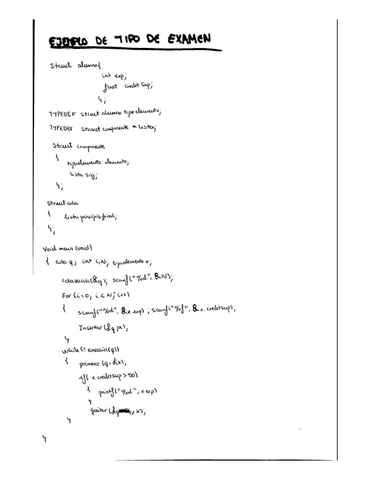 EJEMPLO DE TIPO DE EXAMEN
Struct alumno{
int exp;
float creditSup;
};
TYPEDEF struct alumno tipoelemento;
TYPEDEF struct componente * Lista;
Struct componente
{
tipoelemento elemento;
Lista sig;
};
struct cola
{
Lista principio, final;
};
Void main (void)
{ cola q; int i,N; tipoelemento x;
colavacia(&q); scanf("%d", &N);
For (i=0, i<N; i++)
{
scanf("%d", &x.exp); scanf("%f", &x.creditsup);
Insertar (&q,x);
}
while(!esvacia(q))
{ primero (q,&x);
if( x.creditsup>90)
{ printf("%d", x.exp)
}
quitar(&q, x);
}
}